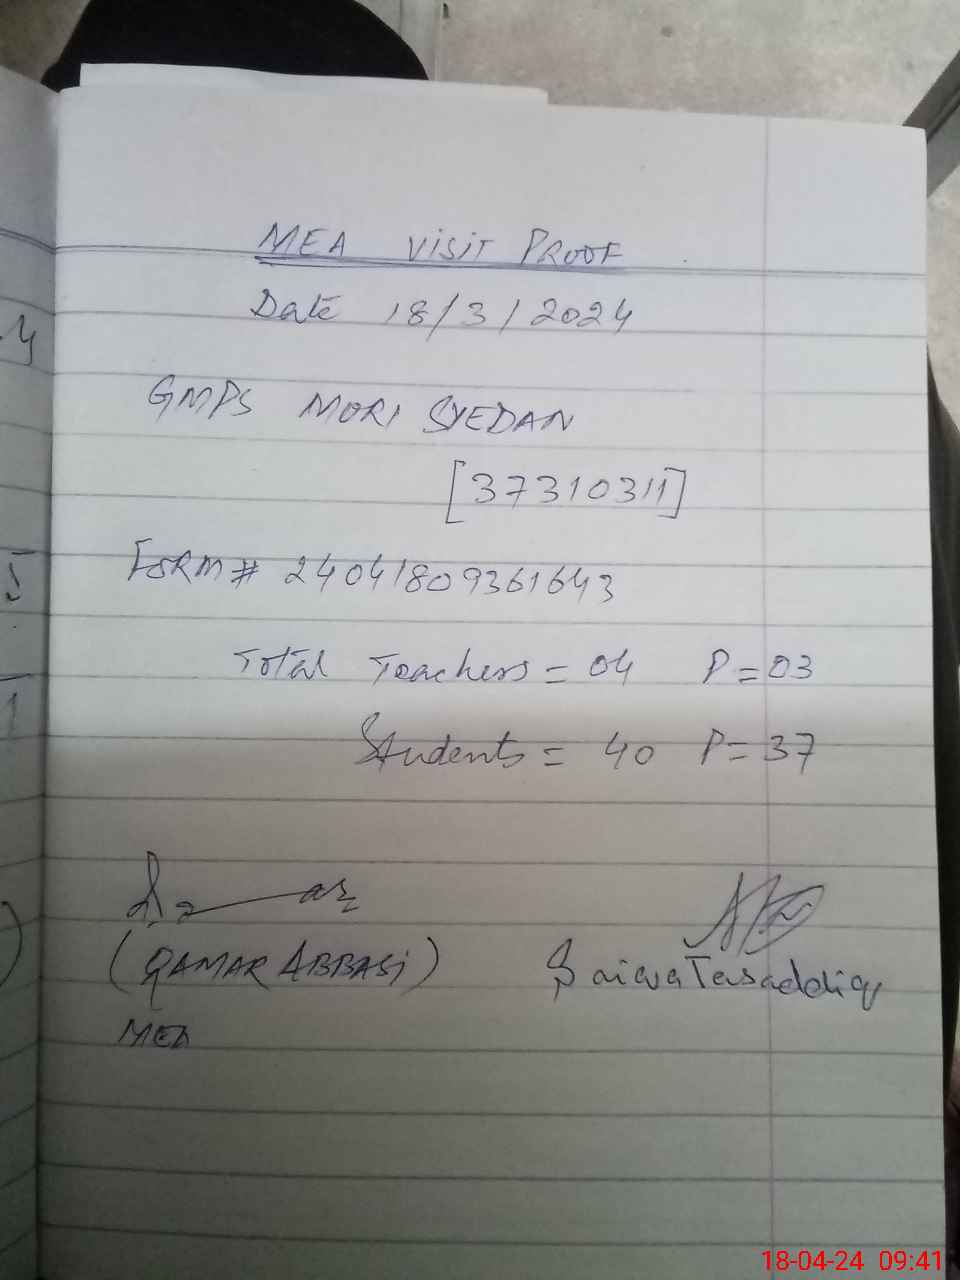 MEA VISIT PROOF
Date 18/3/2024
GMPS MORI SYEDAN
[37310311]
FORM # 24041809361643
Total Teachers = 04 P = 03
Students = 40 P = 37
(QAMAR ABBASI)
Tasaddiq
MEA
18-04-24 09:41